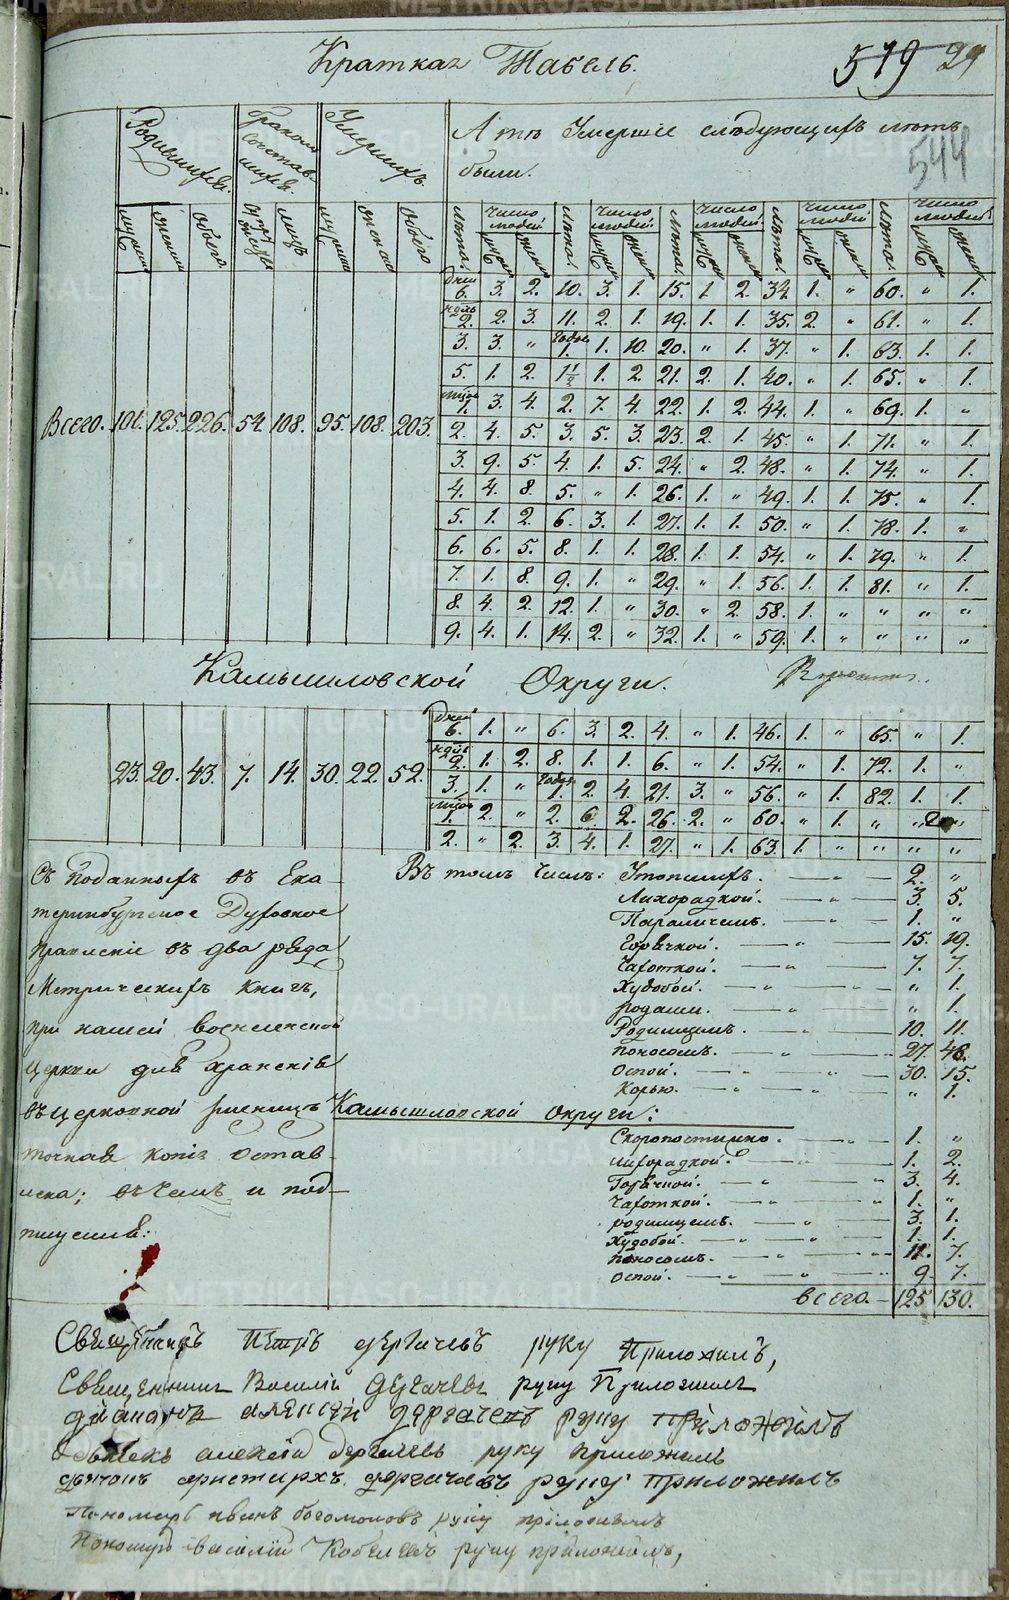 Краткая Табель.
519 29
544
Родившихся.
браком сочетавшихся.
Умершихъ.
А что Умершіе слѣдующихъ лѣтъ
были.
Лѣта. число людей. Лѣта. число людей. Лѣта. число людей. Лѣта. число людей. Лѣта. число людей.
дней 6. 3. 2. 10. 3. 1. 15. 1. 2. 34. 1. " 60. " 1.
2. 2. 3. 11. 2. 1. 19. 1. 1. 35. 2. " 61. " 1.
3. 3. " 1. 1. 10. 20. " 1. 37. " 1. 63. 1. 1.
5. 1. 2. 1½ 1. 2. 21. 2. 1. 40. " 1. 65. " 1.
1. 3. 4. 2. 7. 4. 22. 1. 2. 44. 1. " 69. 1. "
Всего. 101. 125. 226. 54. 108. 95. 108. 203.
2. 4. 5. 3. 5. 3. 23. 2. 1. 45. " 1. 71. " 1.
3. 9. 5. 4. 1. 5. 24. " 2. 48. " 1. 74. " 1.
4. 4. 8. 5. " 1. 26. 1. " 49. 1. 1. 75. " 1.
5. 1. 2. 6. 3. 1. 27. 1. 1. 50. " 1. 78. 1. "
6. 6. 5. 8. 1. 1. 28. 1. 1. 54. " 1. 79. " 1.
7. 1. 8. 9. 1. " 29. " 1. 56. 1. 1. 81. " 1.
8. 4. 2. 12. 1. " 30. " 2. 58. 1. " " " "
9. 4. 1. 14. 2. " 32. 1. " 59. 1. " " " "
Камышловской Округи.
дней 6. 1. " 6. 3. 2. 4. " 1. 46. 1. " 65. " 1.
23. 20. 43. 7. 14. 30. 22. 52.
2. 1. 2. 8. 1. 1. 6. " 1. 54. " 1. 72. 1. "
3. 1. " 1. 2. 4. 21. 3. " 56. " 1. 82. 1. 1.
1. 2. " 2. 6. 2. 26. 2. " 60. " 1. "
2. " 2. 3. 4. 1. 27. " 1. 63. 1. " " " "
Съ поданныхъ въ Ека-
теринбургское Духовное
Правленіе въ два ряда
Метрическихъ книгъ,
при нашей
церкви для храненія
въ церковной ризницѣ
точная копія остав-
лена; въ чемъ и под-
писуемся:
Въ томъ числѣ: Утопшихъ. — " — 2. "
Лихорадкой. — " — 3. 5.
Параличемъ. — " — 1. "
Горячкой. — " — 15. 19.
Чахоткой. — " — 7. 7.
Худобой. — " — " 1.
родами. — " — " 1.
Родимцемъ. — " — 10. 11.
поносомъ. — " — 27. 48.
Оспой. — " — 30. 15.
Корью. — " — " 1.
Камышловской Округи:
Скоропостижно. — " — 1. "
лихорадкой. — " — 1. 2.
Горячкой. — " — 3. 4.
Чахоткой. — " — 1. "
родимцемъ. — " — 3. 1.
Худобой. — " — 1. 1.
Поносомъ. — " — 11. 7.
Оспой. — " — 9. 7.
всего. — 125. 130.
Священникъ Петръ дергачевъ руку Приложилъ,
Священникъ Василій Дергачевъ руку Приложилъ
діаконъ алексѣй дергачевъ руку приложилъ
алексѣй дергачевъ руку приложилъ
дьячокъ аристархъ дергачевъ руку приложилъ
Пономарь иванъ богомоловъ руку приложилъ
Пономарь василій Кобелевъ руку приложилъ,
METRIKI.GASO-URAL.RU